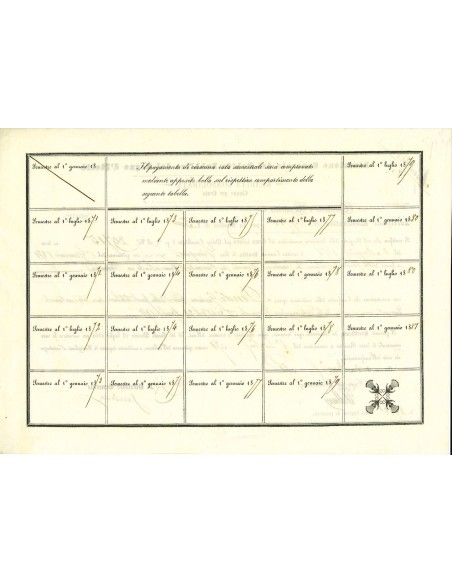 Semestre al 1° gennaio 18
Il pagamento di ciascuna rata semestrale sarà comprovato
mediante apposito bollo sul rispettivo compartimento della
seguente tabella.
Semestre al 1° luglio 1879
Semestre al 1° luglio 1871
Semestre al 1° luglio 1873
Semestre al 1° luglio 1875
Semestre al 1° luglio 1877
Semestre al 1° gennaio 1880
Semestre al 1° gennaio 1872
Semestre al 1° gennaio 1874
Semestre al 1° gennaio 1876
Semestre al 1° gennaio 1878
Semestre al 1° luglio 1880
Semestre al 1° luglio 1872
Semestre al 1° luglio 1874
Semestre al 1° luglio 1876
Semestre al 1° luglio 1878
Semestre al 1° gennaio 1881
Semestre al 1° gennaio 1873
Semestre al 1° gennaio 1875
Semestre al 1° gennaio 1877
Semestre al 1° gennaio 1879